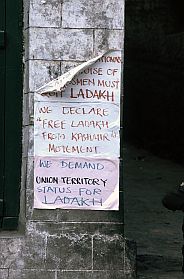 OUSE OF
SMEN MUST
QUIT LADAKH
WE DECLARE
"FREE LADAKH
FROM KASHMIR"
MOVEMENT
WE DEMAND
UNION TERRITORY
STATUS FOR
LADAKH